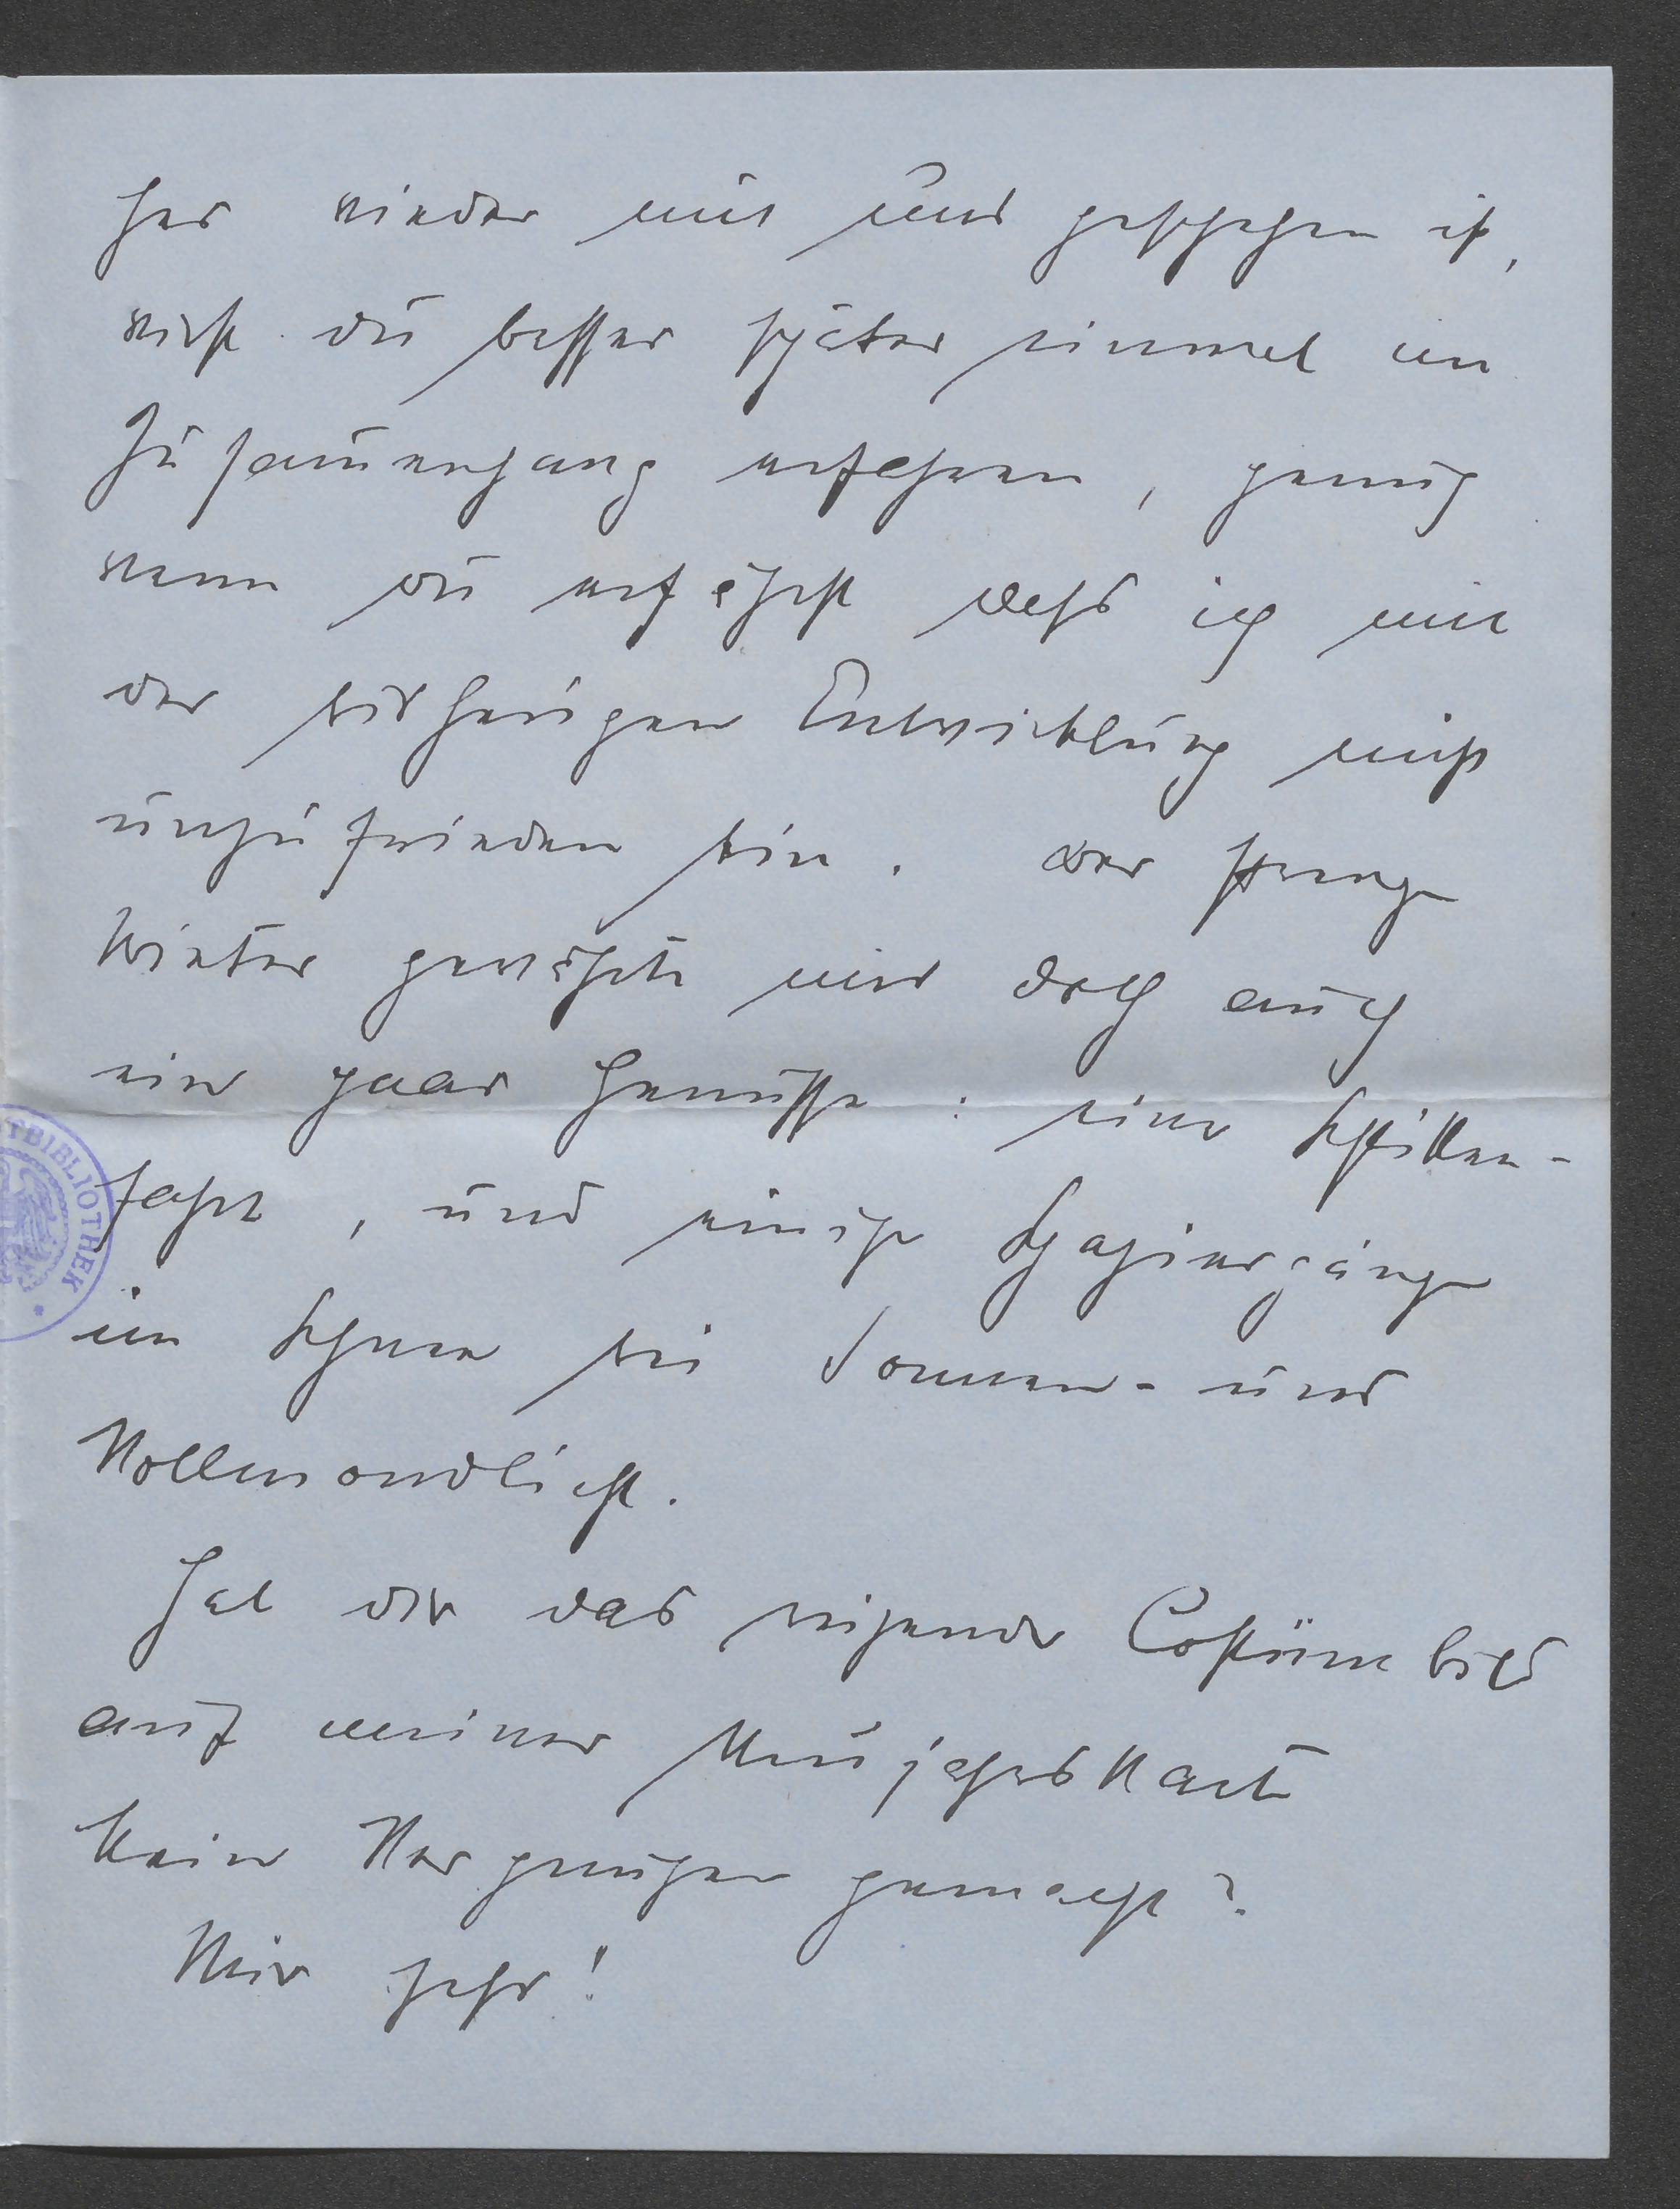 her wieder mit uns geschehen ist,
wirst du besser später einmal im
Zusammenhang erfahren, genug
wenn du erfährst dass ich mit
der bisherigen Entwicklung nicht
unzufrieden bin. der strenge
Winter gewährte mir doch auch
ein paar Genüsse: eine Schlitten-
fahrt, und einige Spaziergänge
im Schnee bei Sonnen- und
Vollmondlicht.
Hat dir das reizende Costümbild
auf meiner Neujahrskarte
kein Vergnügen gemacht?
Mir sehr!
TBIBLIOTHEK